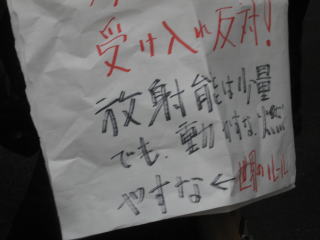 受け入れ反対!
放射能は少量
でも、動かすな、燃
やすな←世界のルール